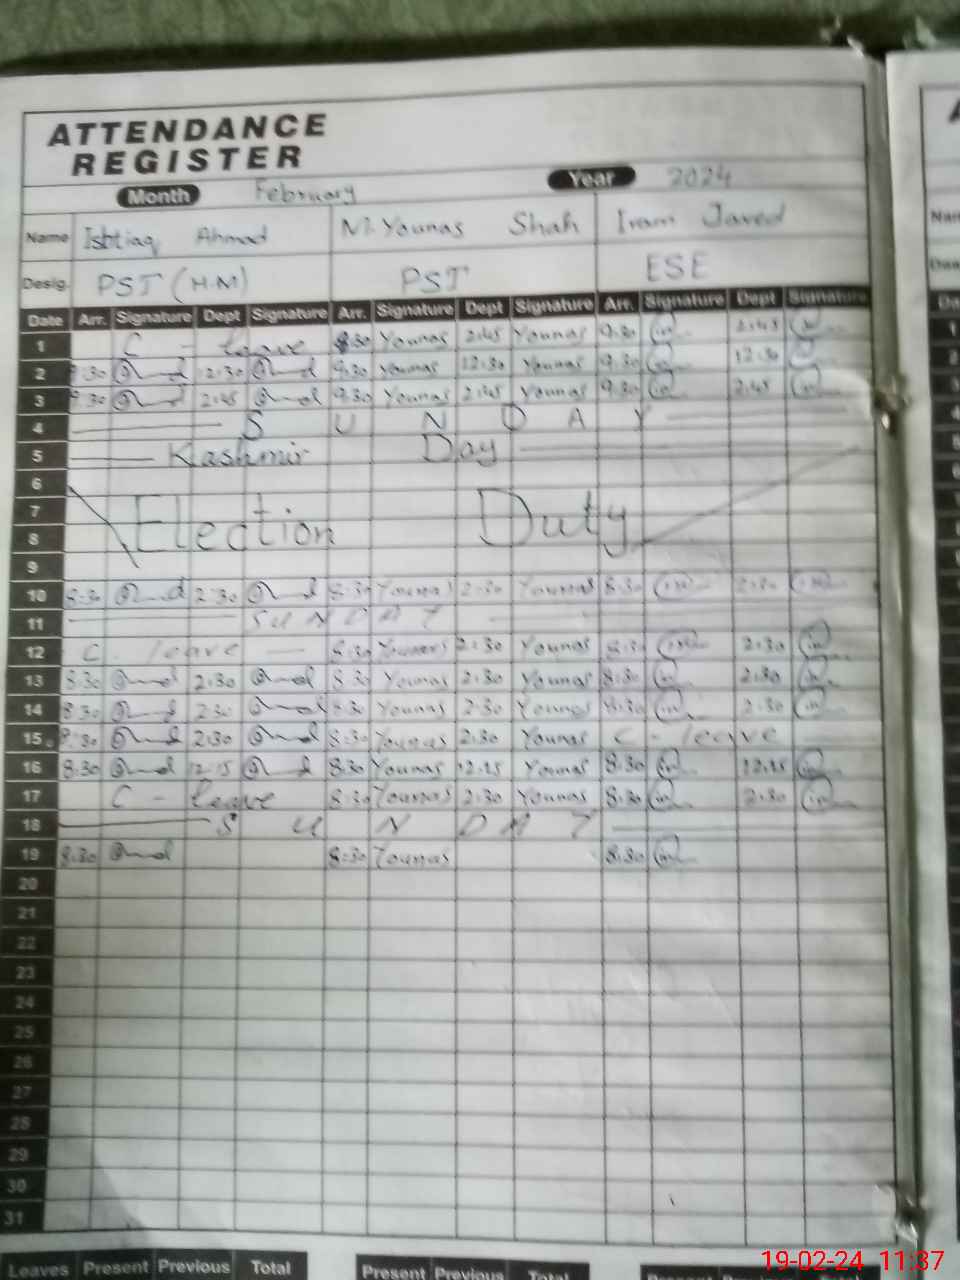 ATTENDANCE
REGISTER
Month February Year 2024
Name Ishtiaq Ahmad M. Younas Shah Iram Javed
Desig. PST (H.M) PST ESE
Date Arr. Signature Dept Signature Arr. Signature Dept Signature Arr. Signature Dept Signature
1 C - leave 8:30 Younas 2:45 Younas 9:30 2:45
2 9:30 12:30 9:30 Younas 12:30 Younas 9:30 12:30
3 9:30 2:45 9:30 Younas 2:45 Younas 9:30 2:45
4 S U N D A Y
5 Kashmir Day
6
7 Election Duty
8
9
10 8:30 2:30 8:30 Younas 2:30 Younas 8:30 2:30
11 S U N D A Y
12 C. leave 8:30 Younas 2:30 Younas 8:30 2:30
13 8:30 2:30 8:30 Younas 2:30 Younas 8:30 2:30
14 8:30 2:30 8:30 Younas 2:30 Younas 8:30 2:30
15 8:30 2:30 8:30 Younas 2:30 Younas C - leave
16 8:30 12:15 8:30 Younas 12:15 Younas 8:30 12:15
17 C - leave 8:30 Younas 2:30 Younas 8:30 2:30
18 S U N D A Y
19 8:30 8:30 Younas 8:30
20
21
22
23
24
25
26
27
28
29
30
31
Leaves Present Previous Total Present Previous Total
19-02-24 11:37